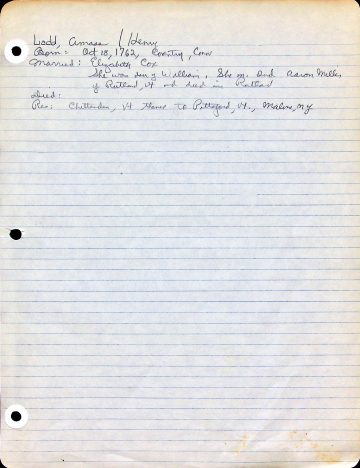 Ladd, Amasa / Henry
Born: Oct 18, 1762, Coventry, Conn
Married: Elizabeth Cox
She was dau of William. She m. 2nd Aaron Miller
of Rutland, Vt and died in Rutland
Died:
Res: Chittenden, Vt thence to Pittsford, Vt., Malone, NY